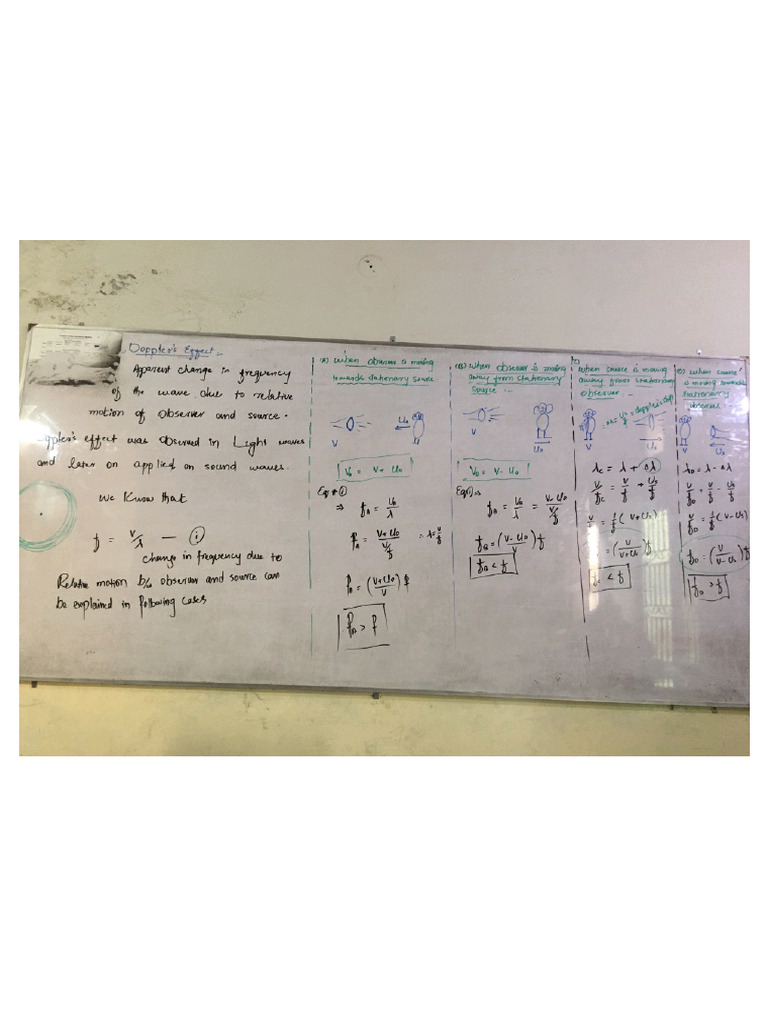 Doppler's Effect :-
Apparent change in frequency
of the wave due to relative
motion of observer and source.
oppler's effect was observed in Light waves
and later on applied on sound waves.
We Know that
f = v/λ — ①
change in frequency due to
Relative motion b/w observer and source can
be explained in following cases
(A) when observer is moving
towards stationary source
V
U₀
V₀ = V + U₀
Eq # ①
⇒ f_A = V₀/λ
f_A = (V + U₀)/(V/f) ∴ λ = v/f
f_A = ((V + U₀)/V) f
f_A > f
(B) when observer is moving
away from stationary
source :-
V
U₀
V₀ = V - U₀
Eq① ⇒
f_B = V₀/λ = (V - U₀)/(V/f)
f_B = ((V - U₀)/V) f
f_B < f
(C)
when source is moving
away from stationary
observer :-
V
U_s
λ_c = λ + Δλ
V/f_c = V/f + U_s/f
= 1/f (V + U_s)
= (V/(V + U_s)) f
< f
(D) when source
is moving towards
stationary
observer
V
U_s
λ_D = λ - Δλ
V/f_D = V/f - U_s/f
V/f_D = 1/f (V - U_s)
f_D = (V/(V - U_s)) f
f_D > f